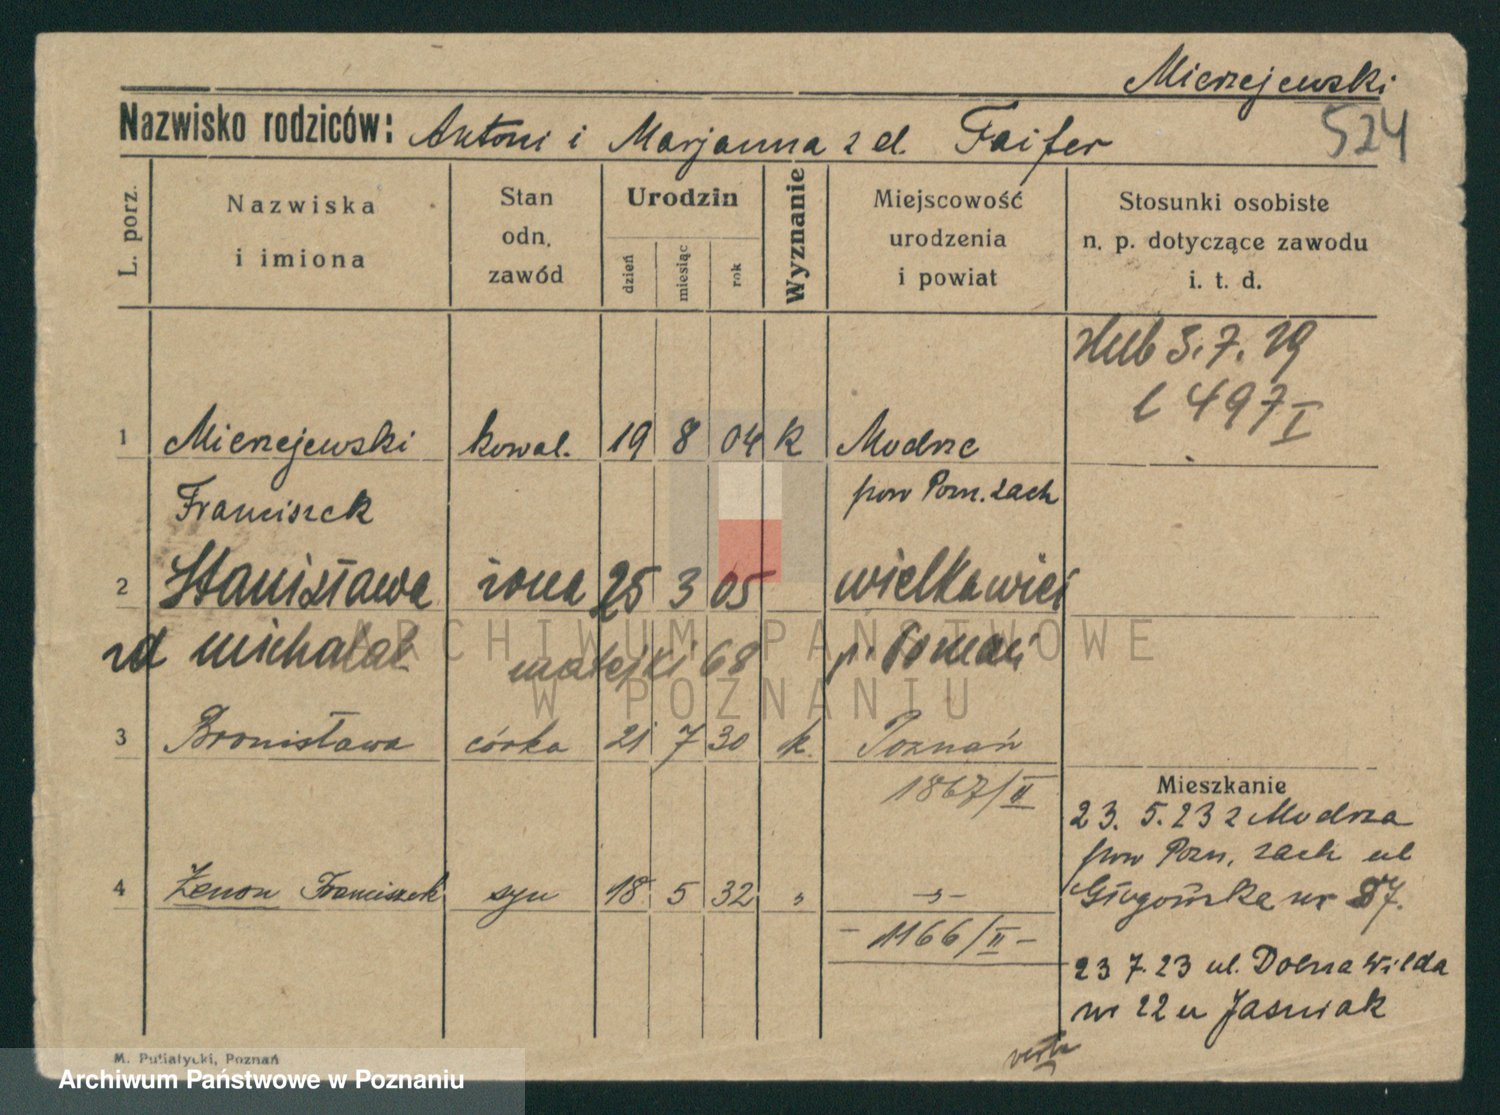 Mierzejewski
524
Nazwisko rodziców: Antoni i Marjanna z d. Faifer
L. porz.
Nazwiska
i imiona
Stan
odn.
zawód
Urodzin
dzień
miesiąc
rok
Wyznanie
Miejscowość
urodzenia
i powiat
Stosunki osobiste
n. p. dotyczące zawodu
i. t. d.
3.7.29
l 497 I
1 Mierzejewski kowal. 19 8 04 k Modrze
Franciszek pow Pozn. zach
2 Stanisława żona 25 3 05 wielkawieś
zd michalak matejki 68 p. Poznań
3 Bronisława córka 21 7 30 k. Poznań
1867/II
Mieszkanie
23. 5. 23 z Modrza
pow Pozn. zach ul
4 Zenon Franciszek syn 18 5 32 " -"-
nr 37.
- 1166/II -
23 7. 23 ul. Dolna Wilda
nr 22 u Jaśniak
verte
M. Putiatycki, Poznań
Archiwum Państwowe w Poznaniu
ARCHIWUM PAŃSTWOWE
W POZNANIU